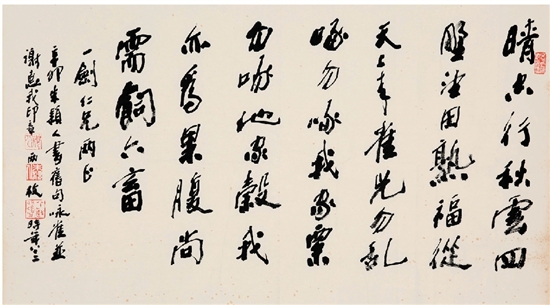 晴空行秋雲四
野望田熟福從
天上來雀兒勿亂
啄勿啄我家粟
勿啄他家穀我
亦為果腹尚
需飼六畜
一劍仁兄兩正
辛卯朱穎人書舊句咏雀並
謝惠我印章兩枚